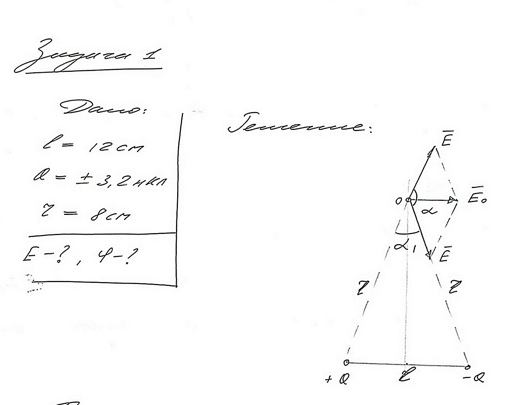 Задача 1
Дано:
l = 12 см
Q = ± 3,2 нКл
r = 8 см
E - ? , φ - ?
Решение:
E
O
α
E₀
α₁
E
r
r
+Q
l
-Q